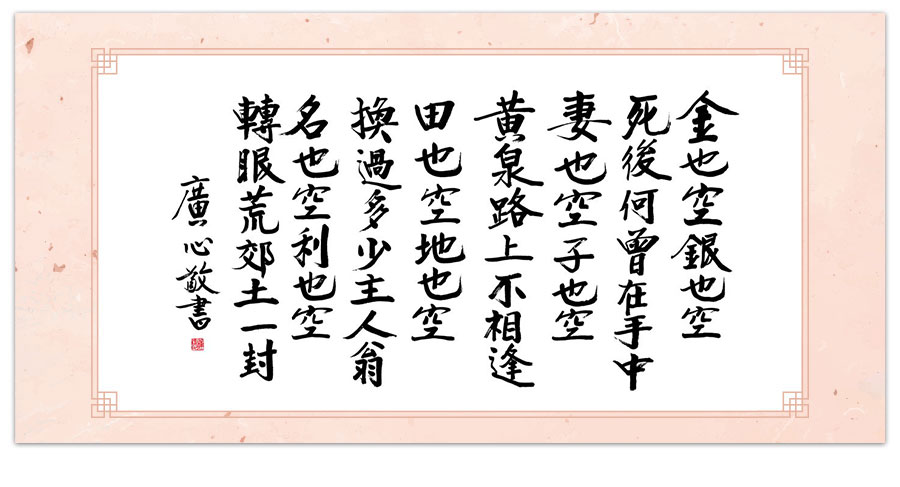 金也空銀也空
死後何曾在手中
妻也空子也空
黄泉路上不相逢
田也空地也空
換過多少主人翁
名也空利也空
轉眼荒郊土一封
廣心敬書